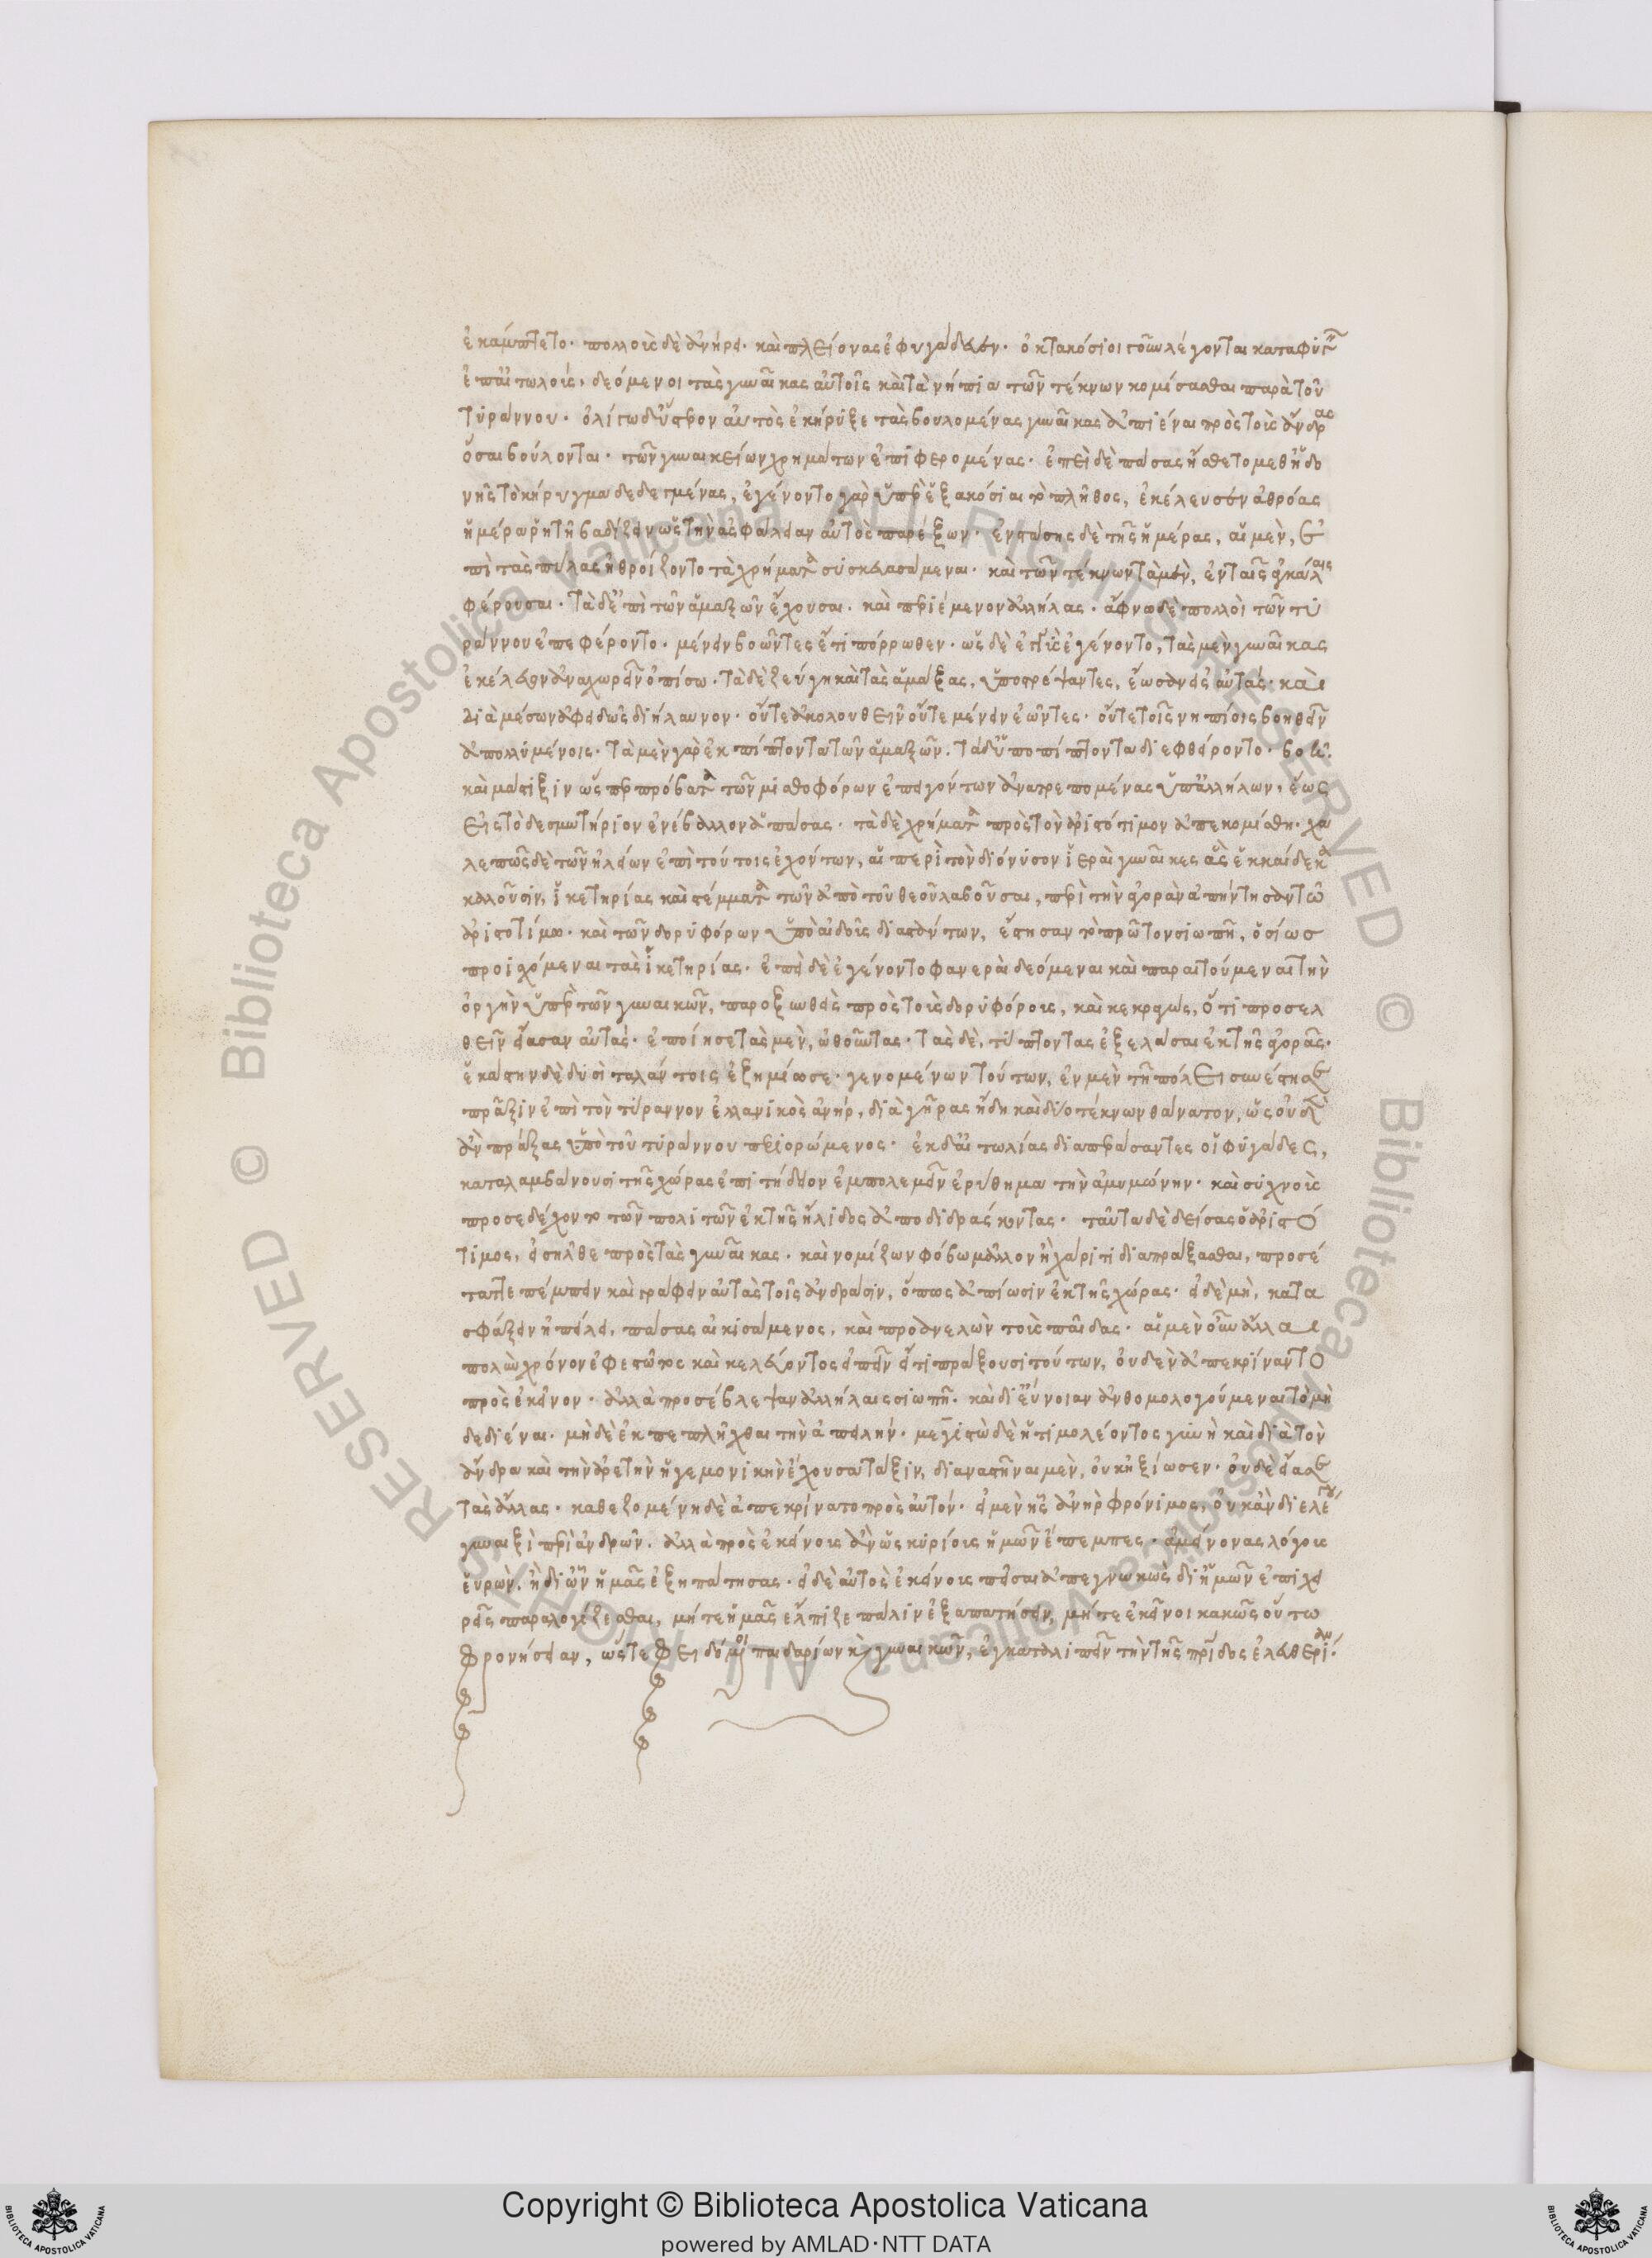 ἐκάμπτετο· πολλοὺς δὲ ἀνήρει καὶ πλείονας ἐφυγάδευεν· ὀκτακόσιοι γοῦν λέγονται καταφυγεῖν
ἐπ' αἰτωλούς, δεόμενοι τὰς γυναῖκας αὐτοῖς καὶ τὰ νήπια τῶν τέκνων κομίσασθαι παρὰ τοῦ
τυράννου· ὀλίγω δ' ὕστερον αὐτὸς ἐκήρυξε τὰς βουλομένας γυναῖκας ἀπιέναι πρὸς τοὺς ἄνδρας
ὅσαι βούλονται· τῶν γυναικείων χρημάτων ἐπιφερομένας· ἐπεὶ δὲ πάσας ἤσθετο μεθ' ἡδο
νῆς τὸ κήρυγμα δεδεγμένας, ἐγένοντο γὰρ ὑπὲρ ἑξακόσιαι τὸ πλῆθος, ἐκέλευσεν ἀθρόας
ἡμέρα ῥητῆ βαδίζειν ὡς τὴν ἀσφάλειαν αὐτὸς παρέξων· ἐνστάσης δὲ τῆς ἡμέρας, αἱ μὲν, ἐ
πὶ τὰς πύλας ἠθροίζοντο τὰ χρήματα συσκευασάμεναι· καὶ τῶν τέκνων τὰ μὲν, ἐν ταῖς ἀγκάλαις
φέρουσαι· τὰ δ' ἐπὶ τῶν ἁμαξῶν ἔχουσαι· καὶ περιέμενον ἀλλήλας· ἄφνω δὲ πολλοὶ τῶν τυ
ράννου ἐπεφέροντο· μένειν βοῶντες ἔτι πόρρωθεν· ὡς δὲ ἐγγὺς ἐγένοντο, τὰς μὲν γυναῖκας
ἐκέλευον ἀναχωρεῖν ὀπίσω· τὰ δὲ ζεύγη καὶ τὰς ἁμάξας, ὑποστρέψαντες, ἐώσαν εἰς αὐτάς· καὶ
διὰ μέσων ἀφειδῶς διήλαυνον· οὔτε ἀκολουθεῖν οὔτε μένειν ἐῶντες· οὔτε τοῖς νηπίοις βοηθεῖν
ἀπολλυμένοις· τὰ μὲν γὰρ ἐκπίπτοντα τῶν ἁμαξῶν. τὰ δ' ὑποπίπτοντα διεφθείροντο· βοῆ
καὶ μάστιξιν ὥσπερ πρόβατα τῶν μισθοφόρων ἐπειγόντων ἀνατρεπομένας ὑπ' ἀλλήλων, ἕως
εἰς τὸ δεσμωτήριον ἐνέβαλλον ἁπάσας· τὰ δὲ χρήματα πρὸς τὸν ἀριστότιμον ἀπεκομίσθη· χα
λεπῶς δὲ τῶν ἠλείων ἐπὶ τούτοις ἐχόντων, αἱ περὶ τὸν διόνυσον ἱεραὶ γυναῖκες ἃς ἑκκαίδεκα
καλοῦσιν, ἱκετηρίας καὶ στέμματα τῶν ἀπὸ τοῦ θεοῦ λαβοῦσαι, περὶ τὴν ἀγορὰν ἀπήντησαν τῶ
ἀριστοτίμω· καὶ τῶν δορυφόρων ὑπὸ αἰδοῦς διαστάντων, ἔστησαν τὸ πρῶτον σιωπῆ, ὁσίως
προισχόμεναι τὰς ἱκετηρίας· ἐπεὶ δὲ ἐγένοντο φανεραὶ δεόμεναι καὶ παραιτούμεναι τὴν
ὀργὴν ὑπὲρ τῶν γυναικῶν, παροξυνθεὶς πρὸς τοὺς δορυφόρους, καὶ κεκραγὼς, ὅτι προσελ
θεῖν εἴασαν αὐτάς· ἐποίησε τὰς μὲν, ὠθοῦντας· τὰς δὲ, τύπτοντας ἐξελάσαι ἐκ τῆς ἀγορᾶς·
ἑκάστην δὲ δυσὶ ταλάντοις ἐζημίωσε· γενομένων τούτων, ἐν μὲν τῆ πόλει συνέστησε
πρᾶξιν ἐπὶ τὸν τύραννον ἑλλάνικος ἀνήρ, διὰ γῆρας ἤδη καὶ δύο τέκνων θάνατον, ὡς οὐδὲν
ἂν πράξας ὑπὸ τοῦ τυράννου περιορώμενος· ἐκ δ' αἰτωλίας διαπεράσαντες οἱ φυγάδες,
καταλαμβάνουσι τῆς χώρας ἐπιτήδειον ἐμπολεμεῖν ἐρύθημα τὴν ἀμυμώνην· καὶ συχνοὺς
προσεδέχοντο τῶν πολιτῶν ἐκ τῆς ἤλιδος ἀποδιδράσκοντας· ταῦτα δὲ δείσας ὁ ἀριστό
τιμος, εἰσῆλθε πρὸς τὰς γυναῖκας· καὶ νομίζων φόβω μᾶλλον ἢ χάριτι διαπράξασθαι, προσέ
ταττε πέμπειν καὶ γράφειν αὐτὰς τοῖς ἀνδράσιν, ὅπως ἀπίωσιν ἐκ τῆς χώρας· εἰ δὲ μὴ, κατα
σφάξειν ἠπείλει, πάσας αἰκισάμενος, καὶ προανελὼν τοὺς παῖδας· αἱ μὲν οὖν ἄλλαι
πολὺν χρόνον ἐφεστῶτος καὶ κελεύοντος εἰπεῖν εἴ τι πράξουσι τούτων, οὐδὲν ἀπεκρίναντο
πρὸς ἐκεῖνον· ἀλλὰ προσέβλεψαν ἀλλήλαις σιωπῆ· καὶ δι' εὔνοιαν ἀνθομολογούμεναι τὸ μὴ
δεδιέναι· μὴ δὲ ἐκπεπλῆχθαι τὴν ἀπειλήν· μεγιστὼ δὲ ἡ τιμολέοντος γυνὴ καὶ διὰ τὸν
ἄνδρα καὶ τὴν ἀρετὴν ἡγεμονικὴν ἔχουσα τάξιν, διαναστῆναι μὲν, οὐκ ἠξίωσεν· οὐδὲ εἴασε
τὰς ἄλλας· καθεζομένη δὲ ἀπεκρίνατο πρὸς αὐτόν· εἰ μὲν ἦς ἀνὴρ φρόνιμος, οὐκ ἂν διελέγου
γυναιξὶ περὶ ἀνδρῶν· ἀλλὰ πρὸς ἐκείνους ἂν ὡς κυρίους ἡμῶν ἔπεμπες· ἀμείνονας λόγους
εὑρὼν, ἢ δι' ὧν ἡμᾶς ἐξηπάτησας· εἰ δὲ αὐτὸς ἐκείνους πεῖσαι ἀπεγνωκὼς δι' ἡμῶν ἐπιχει
ρεῖς παραλογίζεσθαι, μήτε ἡμᾶς ἔλπιζε πάλιν ἐξαπατήσειν, μήτε ἐκεῖνοι κακῶς οὕτω
φρονήσειαν, ὥστε φειδόμενοι παιδαρίων καὶ γυναικῶν, ἐγκαταλιπεῖν τὴν τῆς πατρίδος ἐλευθερίαν·